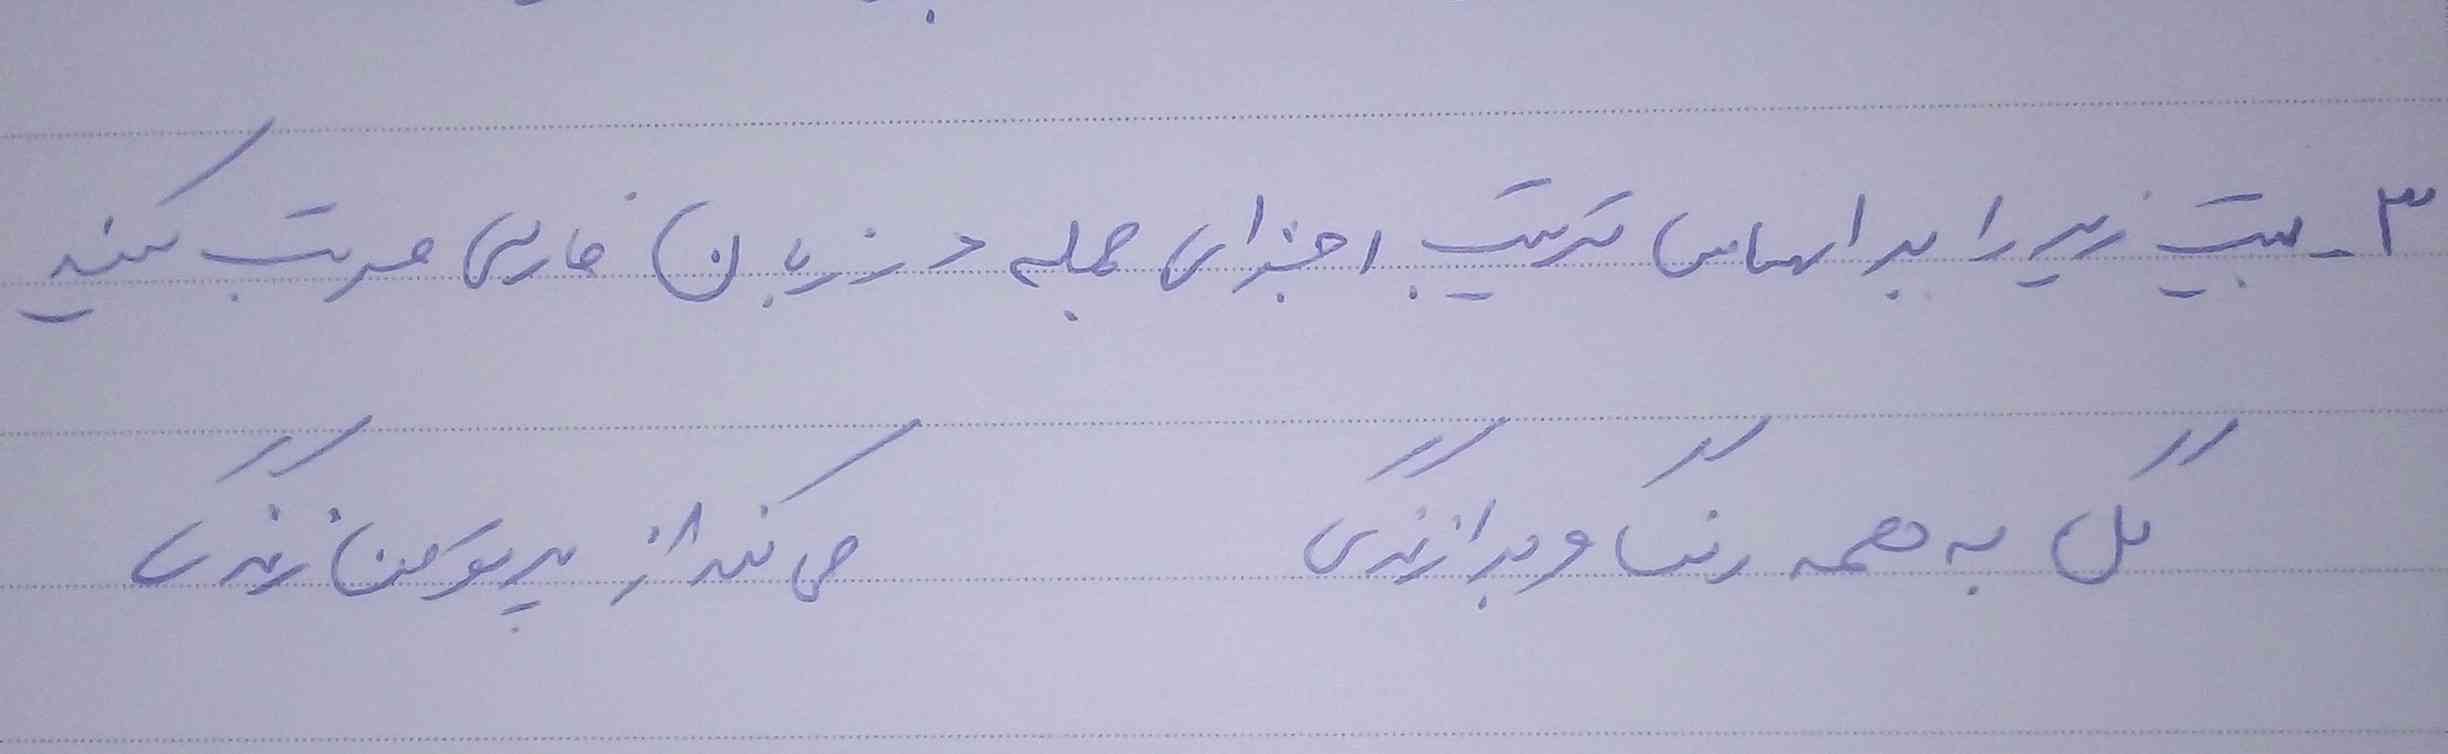 ۳_ بیت زیر را بر اساس ترتیب اجزای جمله در زبان فارسی مرتب کنید
گل به همه رنگ و برازندگی می کند از پرتو من زندگی